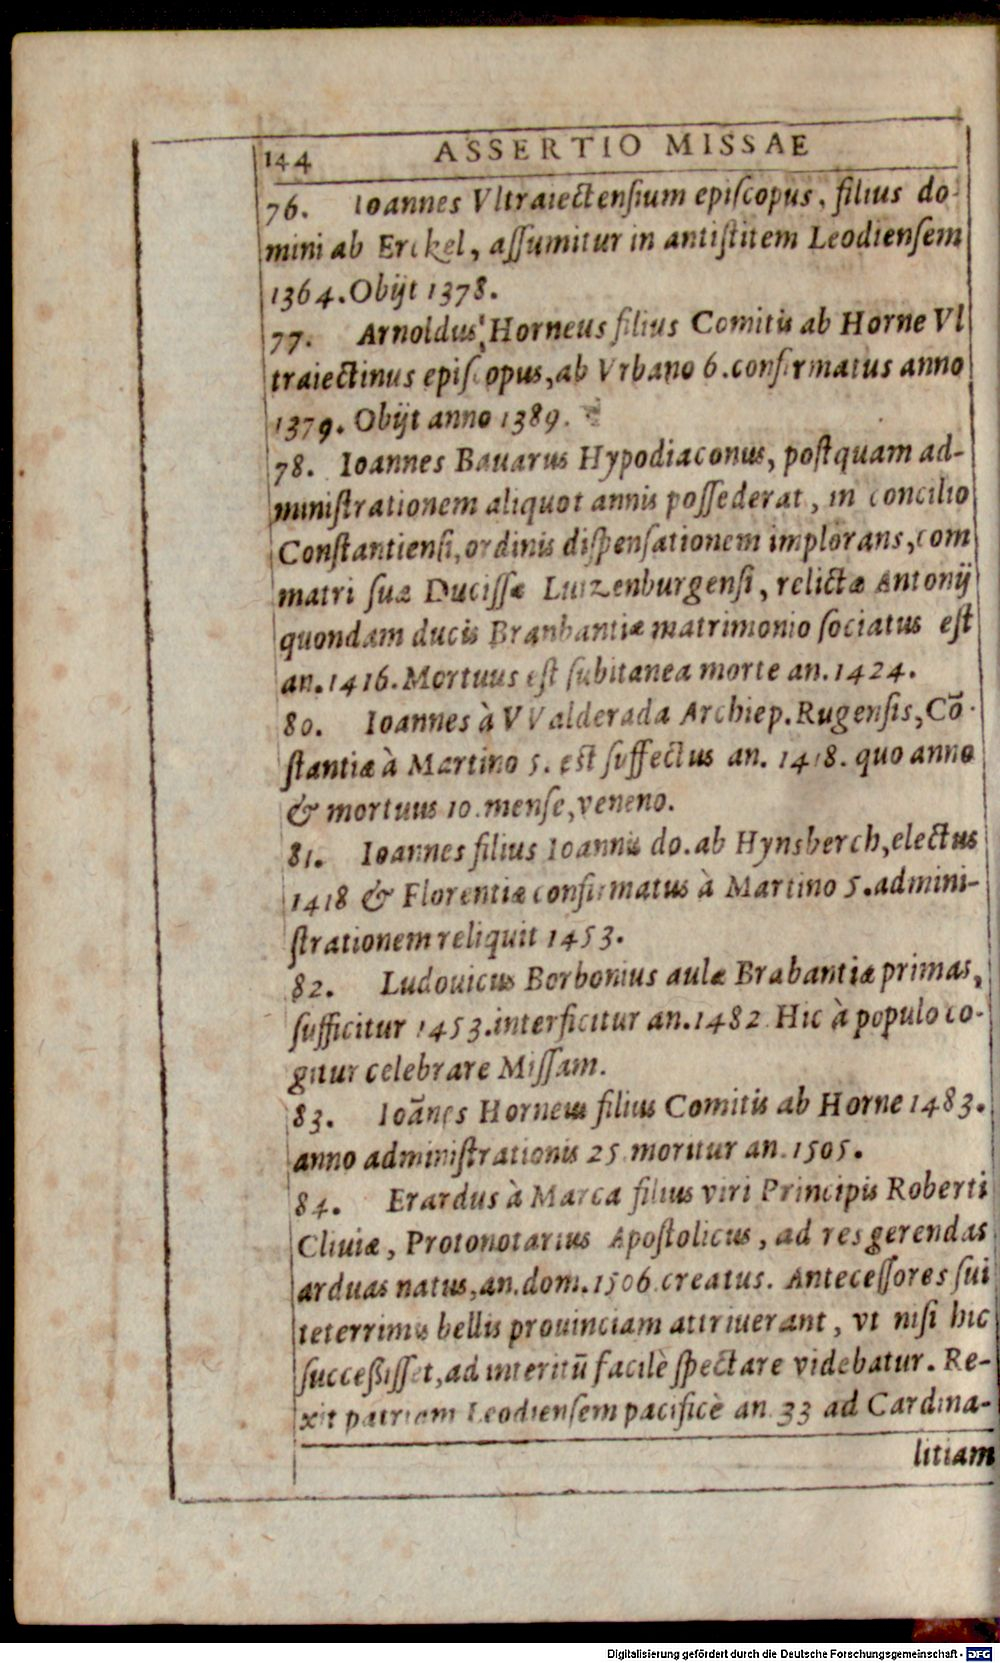 144 ASSERTIO MISSAE
76. Ioannes Vltraiectensium episcopus, filius do-
mini ab Erckel, assumitur in antistitem Leodiensem
1364. Obijt 1378.
77. Arnoldus Horneus filius Comitis ab Horne Vl
traiectinus episcopus, ab Vrbano 6. confirmatus anno
1379. Obijt anno 1389.
78. Ioannes Bauarus Hypodiaconus, postquam ad-
ministrationem aliquot annis possederat, in concilio
Constantiensi, ordinis dispensationem implorans, com
matri suæ Ducissæ Lutzenburgensi, relictæ Antonij
quondam ducis Branbantiæ matrimonio sociatus est
an. 1416. Mortuus est subitanea morte an. 1424.
80. Ioannes à VValderada Archiep. Rugensis, Cō-
stantiæ à Martino 5. est suffectus an. 1418. quo anno
& mortuus 10. mense, veneno.
81. Ioannes filius Ioannis do. ab Hynsberch, electus
1418 & Florentiæ confirmatus à Martino 5. admini-
strationem reliquit 1453.
82. Ludouicus Borbonius aulæ Brabantiæ primas,
sufficitur 1453. interficitur an. 1482 Hic à populo co-
gitur celebrare Missam.
83. Ioānes Horneus filius Comitis ab Horne 1483.
anno administrationis 25 moritur an. 1505.
84. Erardus à Marca filius viri Principis Roberti
Cliuiæ, Protonotarius Apostolicus, ad res gerendas
arduas natus, an. dom. 1506. creatus. Antecessores sui
teterrimis bellis prouinciam attriuerant, vt nisi hic
successisset, ad interitū facilè spectare videbatur. Re-
xit patriam Leodiensem pacificè an. 33 ad Cardina-
litiam
Digitalisierung gefördert durch die Deutsche Forschungsgemeinschaft - DFG